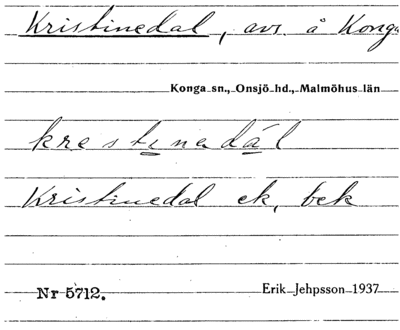 Kristinedal, avs. å Konga
Konga sn., Onsjö hd., Malmöhus län
krestenadál
Kristinedal ek, bek
Nr 5712. Erik Jehpsson 1937